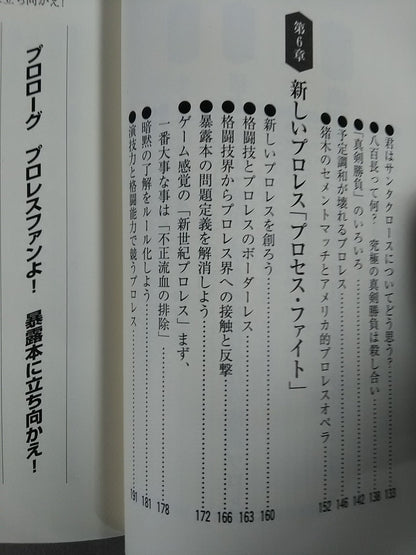 ●君はサンタクロースについてどう思う?………133
●八百長って何? 究極の真剣勝負は殺し合い………138
●「真剣勝負」のいろいろ………142
●予定調和が壊れるプロレス………146
●猪木のセメントマッチとアメリカ的プロレスオペラ………152
第6章
新しいプロレス「プロセス・ファイト」
●新しいプロレスを創ろう………160
●格闘技とプロレスのボーダーレス………163
●格闘技界からプロレス界への接触と反撃………166
●暴露本の問題定義を解消しよう………172
●ゲーム感覚の「新世紀プロレス」まず、
一番大事な事は「不正流血の排除」………178
●暗黙の了解をルール化しよう………181
●演技力と格闘能力で競うプロレス………191
立ち向かえ!
プロローグ プロレスファンよ! 暴露本に立ち向かえ!